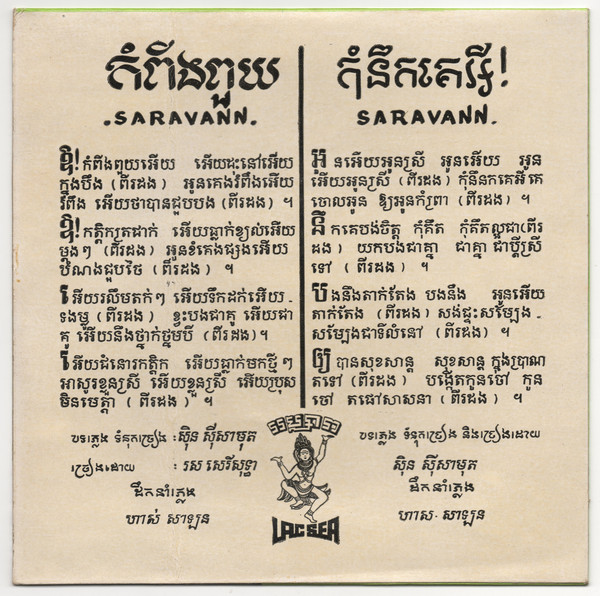 កំពីងពួយ
.SARAVANN.
ឱ! កំពីងពួយអើយ អើយដុះនៅអើយ
ក្នុងបឹង (ពីរដង) អូនគេងរំពឹងអើយ
រំពឹង អើយថាបានជួបបង (ពីរដង) ។
ឱ! កត្តិកត្រជាក់ អើយធ្លាក់ខ្យល់អើយ
ម្ដងៗ (ពីរដង) អូនខំគេងផ្សងអើយ
បំណងជួបថៃ (ពីរដង) ។
ឱអើយរលឹមតក់ៗ អើយទឹកដក់អើយ
ទងម្លូ (ពីរដង) ខ្វះបងជាគូ អើយជា
គូ អើយនឹងថ្នាក់ថ្នមបី (ពីរដង)។
ឱអើយជំនោរកត្តិក អើយធ្លាក់មកថ្មីៗ
អាសូរខ្លួនស្រី អើយខ្លួនស្រី អើយប្រុស
មិនមេត្តា (ពីរដង) ។
បទភ្លេង ទំនុកច្រៀង : ស៊ិន ស៊ីសាមុត
ច្រៀងដោយ : រស សេរីសុទ្ធា
ដឹកនាំភ្លេង
ហាស់ សាឡន
កុំនឹកគេអី!
SARAVANN.
អូនអើយអូនស្រី អូនអើយ អូន
អើយអូនស្រី (ពីរដង) កុំនឹកគេអី គេ
ចោលអូន ឱ្យអូនកំព្រា (ពីរដង) ។
នឹកគេបង់ចិត្ត កុំគិត កុំគិតល្អជា (ពីរ
ដង) យកបងជាគ្នា ជាគ្នា ជាប្ដីស្រី
ទៅ (ពីរដង) ។
បងនឹងតាក់តែង បងនឹង អូនអើយ
តាក់តែង (ពីរដង) សង់ផ្ទះសម្បែង
សម្បែងជាទីលំនៅ (ពីរដង) ។
ឲ្យបានសុខសាន្ត សុខសាន្ត ក្នុងប្រាណ
តទៅ (ពីរដង) បង្កើតកូនចៅ កូន
ចៅ តផៅសាសនា (ពីរដង) ។
បទភ្លេង ទំនុកច្រៀង និងច្រៀងដោយ
ស៊ិន ស៊ីសាមុត
ដឹកនាំភ្លេង
ហាស សាឡន
LAC SEA